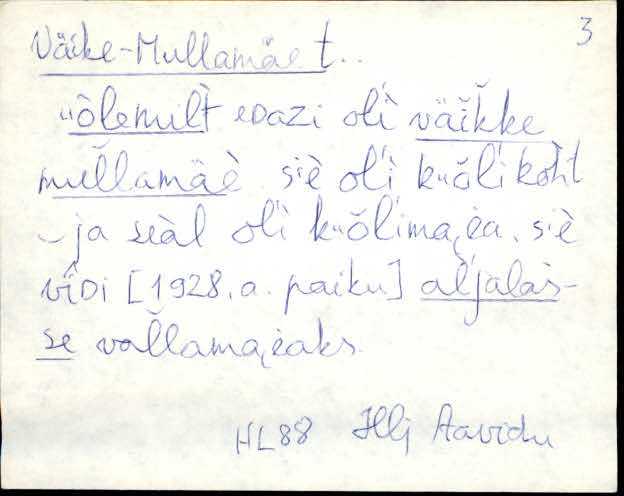 3
Väike-Mullamäe t..
"õlemilt̀ eᴅazi olì väi̮kke
mullamäè. siè olì k"ŏli koht
– ja seàl olì k"ŏlimajea. siè
vîᴅi [1928. a. paiku] aljalas-
se vallamajeaks.
HL88 Hlj Aavidu